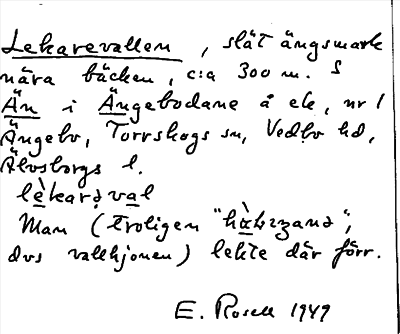 Lekarevallen, slät ängsmark
nära bäcken, c:a 300 m. S
Än i Ängebodane å ek, nr 1
Ängebo, Torrskogs sn, Vedbo hd,
Älvsborgs l.
lèkarəval
Man (troligen
dvs vallhjonen) lekte där förr.
E. Rosell 1949